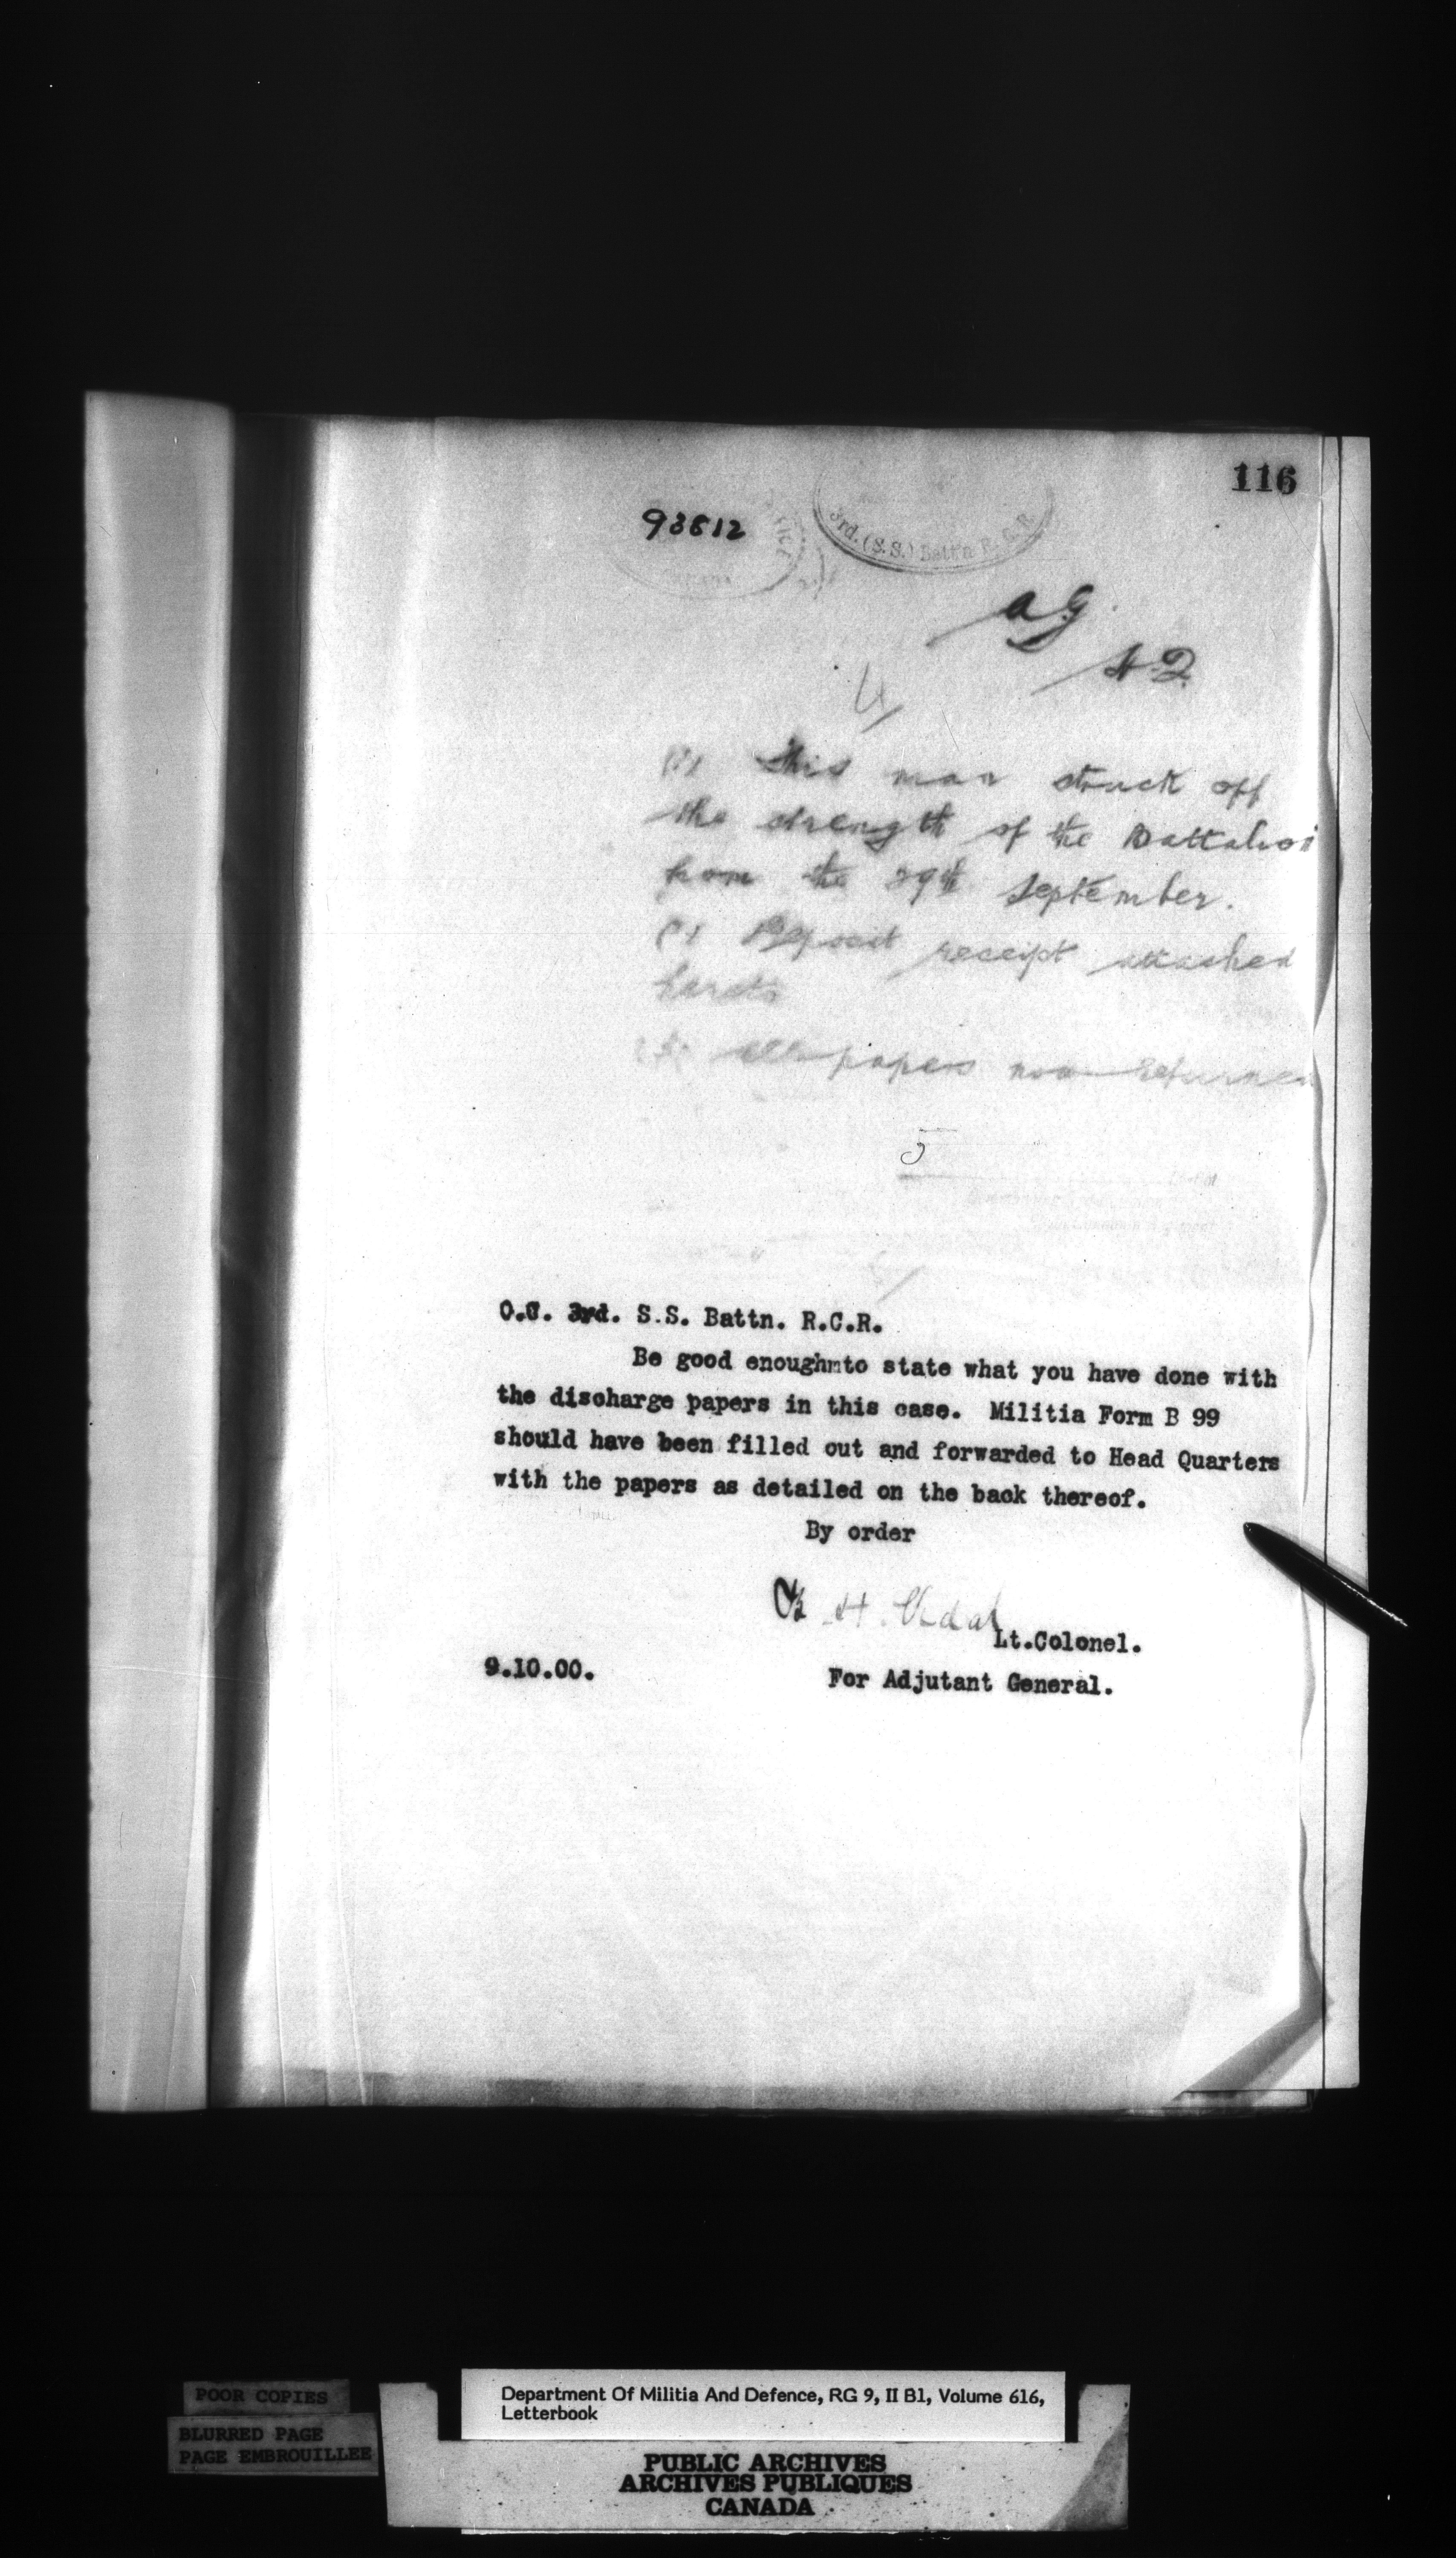 116
93612
3rd. (S.S.) Batt'n R.C.R.
A.G.
H.Q.
4/
(1) This man struck off
the strength of the Battalion
from the 29th September.
(2) Deposit receipt attached
hereto
(3) All papers now returned
5
O.C. 3rd. S.S. Battn. R.C.R.
Be good enoughmto state what you have done with
the discharge papers in this case. Militia Form B 99
should have been filled out and forwarded to Head Quarters
with the papers as detailed on the back thereof.
By order
H. Vidal
Lt.Colonel.
9.10.00.
For Adjutant General.
POOR COPIES
BLURRED PAGE
PAGE EMBROUILLEE
Department Of Militia And Defence, RG 9, II B1, Volume 616,
Letterbook
PUBLIC ARCHIVES
ARCHIVES PUBLIQUES
CANADA